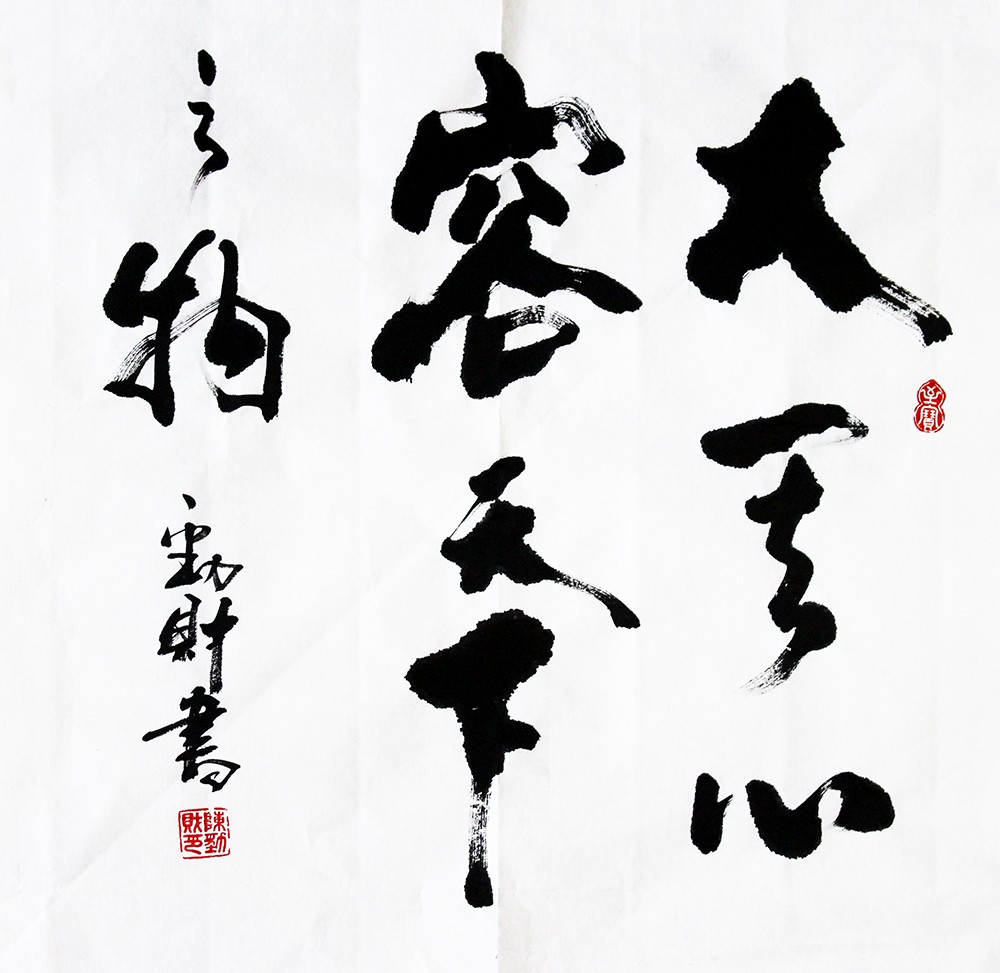 大其心
容天下
之物
勁財書
陳勁財印